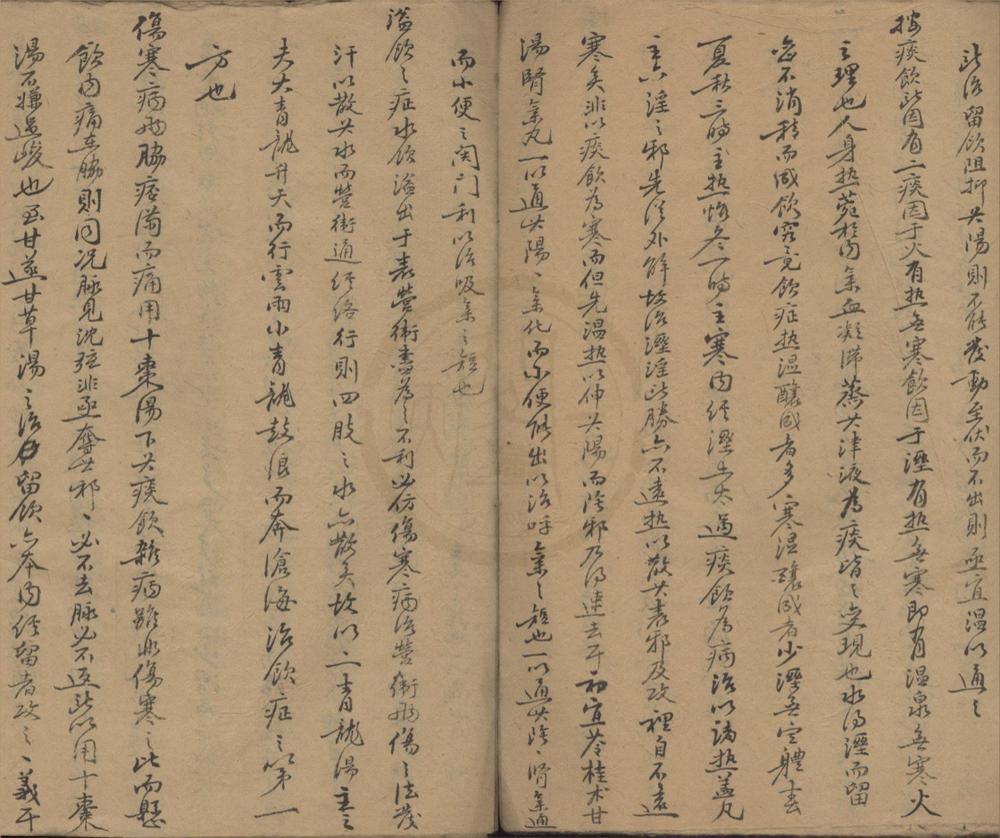 此治留飲阻抑其陽則不能發動至伏而不出則亟宜温以通之
按痰飲皆因有二痰因于火有热無寒飲因于溼有热無寒即有温泉無寒火
之理也人身热蒸於内氣血凝滞蒸其津液為痰皆之变現也水得溼而留
而不消積而成飲究竟飲症热温釀成者多寒温釀成者少溼無定體春
夏秋三時主热惟冬一時主寒内经溼土太過痰飲為病治以諸热盖凡
主六淫之邪先從外解故治溼淫此勝亦不遠热以散其表邪及攻裡自不遠
寒矣非以痰飲為寒而但先温热以伸其陽而陰邪乃得速去耳初宜苓桂术甘
湯腎氣丸一以通其陽、氣化而小便能出以治呼氣之短也一以通其陰、腎氣通
而小便之関门利以治吸氣之短也
溢飲之症水飲溢出于表營衛盡為之不利必仿傷寒病治營衛两傷之法發
汗以散其水而營衛通经络行則四肢之水亦散矣故以二青龍湯主之
夫大青龍升天而行雲雨小青龍鼓浪而奔滄海治飲症之以第一
方也
傷寒病两脇痞滿而痛用十棗湯下其痰飲雜病雖非傷寒之比而懸
飲内痛在脇則同况脉見沈弦非亟奪其邪、必不去脉必不返此以用十棗
湯不嫌過峻也至甘遂甘草湯之治留飲亦本内经留者攻之、義耳